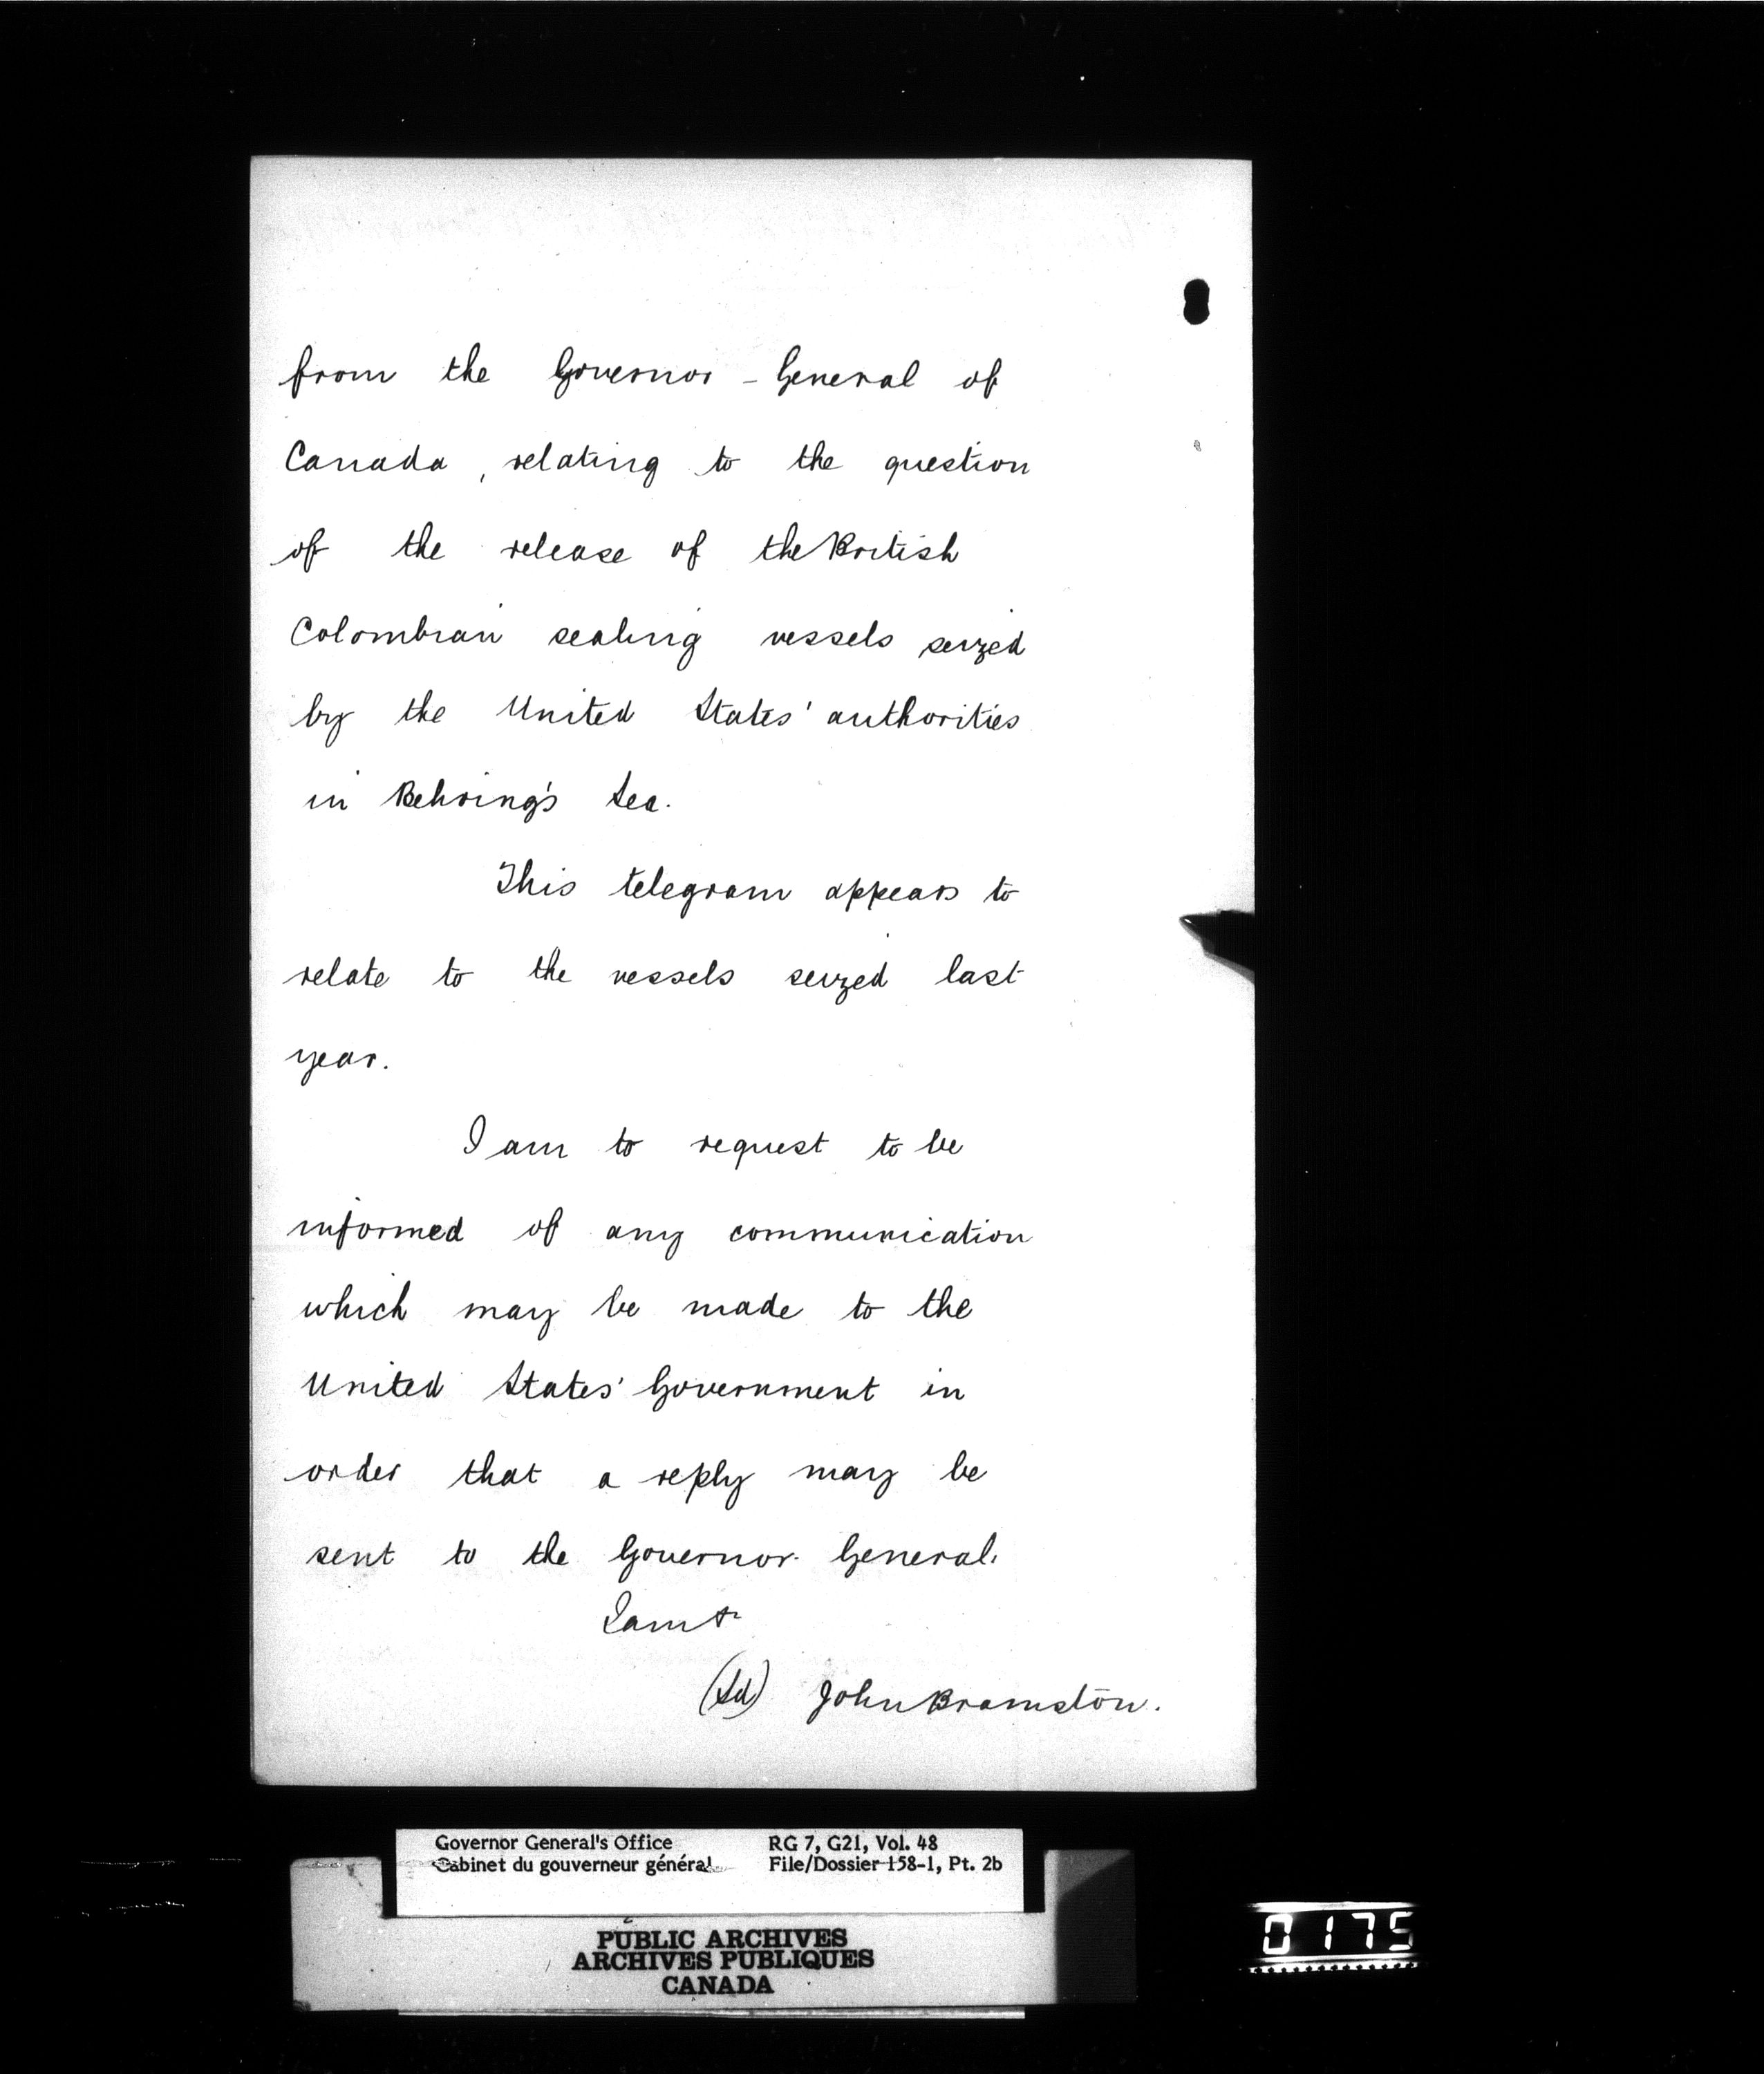 from the Governor-General of
Canada, relating to the question
of the release of the British
Colombian sealing vessels seized
by the United States' authorities
in Behring's Sea.
This telegram appears to
relate to the vessels seized last
year.
I am to request to be
informed of any communication
which may be made to the
United States' Government in
order that a reply may be
sent to the Governor-General.
I am &c
(Sd) John Bramston.
Governor General's Office
Cabinet du gouverneur général
RG 7, G21, Vol. 48
File/Dossier 158-1, Pt. 2b
PUBLIC ARCHIVES
ARCHIVES PUBLIQUES
CANADA
0175